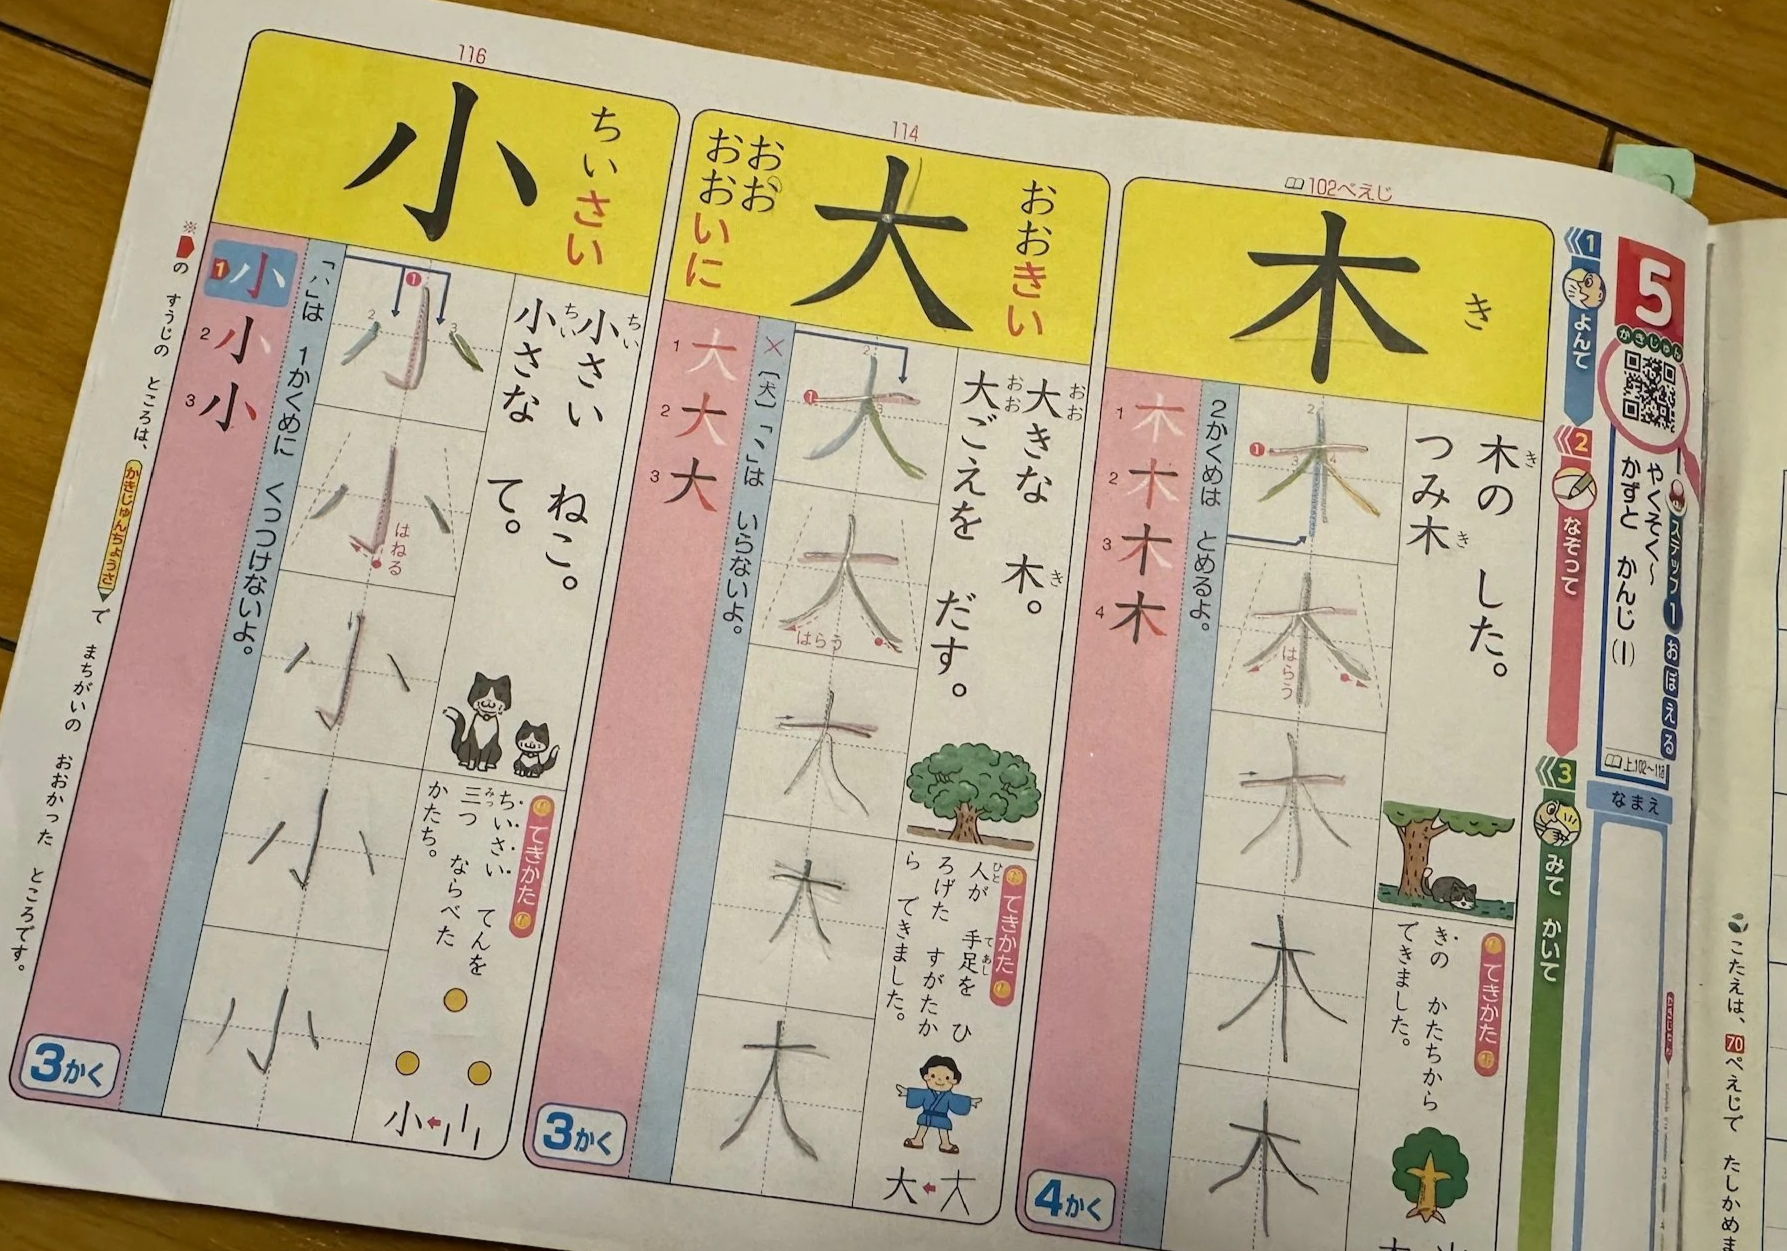 5
かきじゅん
ステップ1 おぼえる
やくそく〜
かずと かんじ(1)
上102〜118
なまえ
1 よんて
2 なぞって
3 みて かいて
102ぺえじ
木
き
木の した。
き
つみ木
き
2かくめは とめるよ。
1
2
3
4
はらう
1 木
2 木
3 木
4 木
4かく
てきかた
きの かたちから
できました。
114
大
おおきい
おお
おおいに
大きな 木。
おお き
大ごえを だす。
おお
×〔犬〕「丶」は いらないよ。
1
2
3
はらう
1 大
2 大
3 大
3かく
てきかた
人が 手足を ひ
ひと てあし
ろげた すがたか
ら できました。
大←大
116
小
ちいさい
小さい ねこ。
ちい
小さな て。
ちい
「ハ」は 1かくめに くっつけないよ。
1
2
3
はねる
1 小
2 小
3 小
3かく
てきかた
ちいさい てんを
三つ ならべた
みっ
かたち。
小←
※の すうじの ところは、かきじゅんちょうさで まちがいの おおかった ところです。
こたえは、70ぺえじで たしかめま